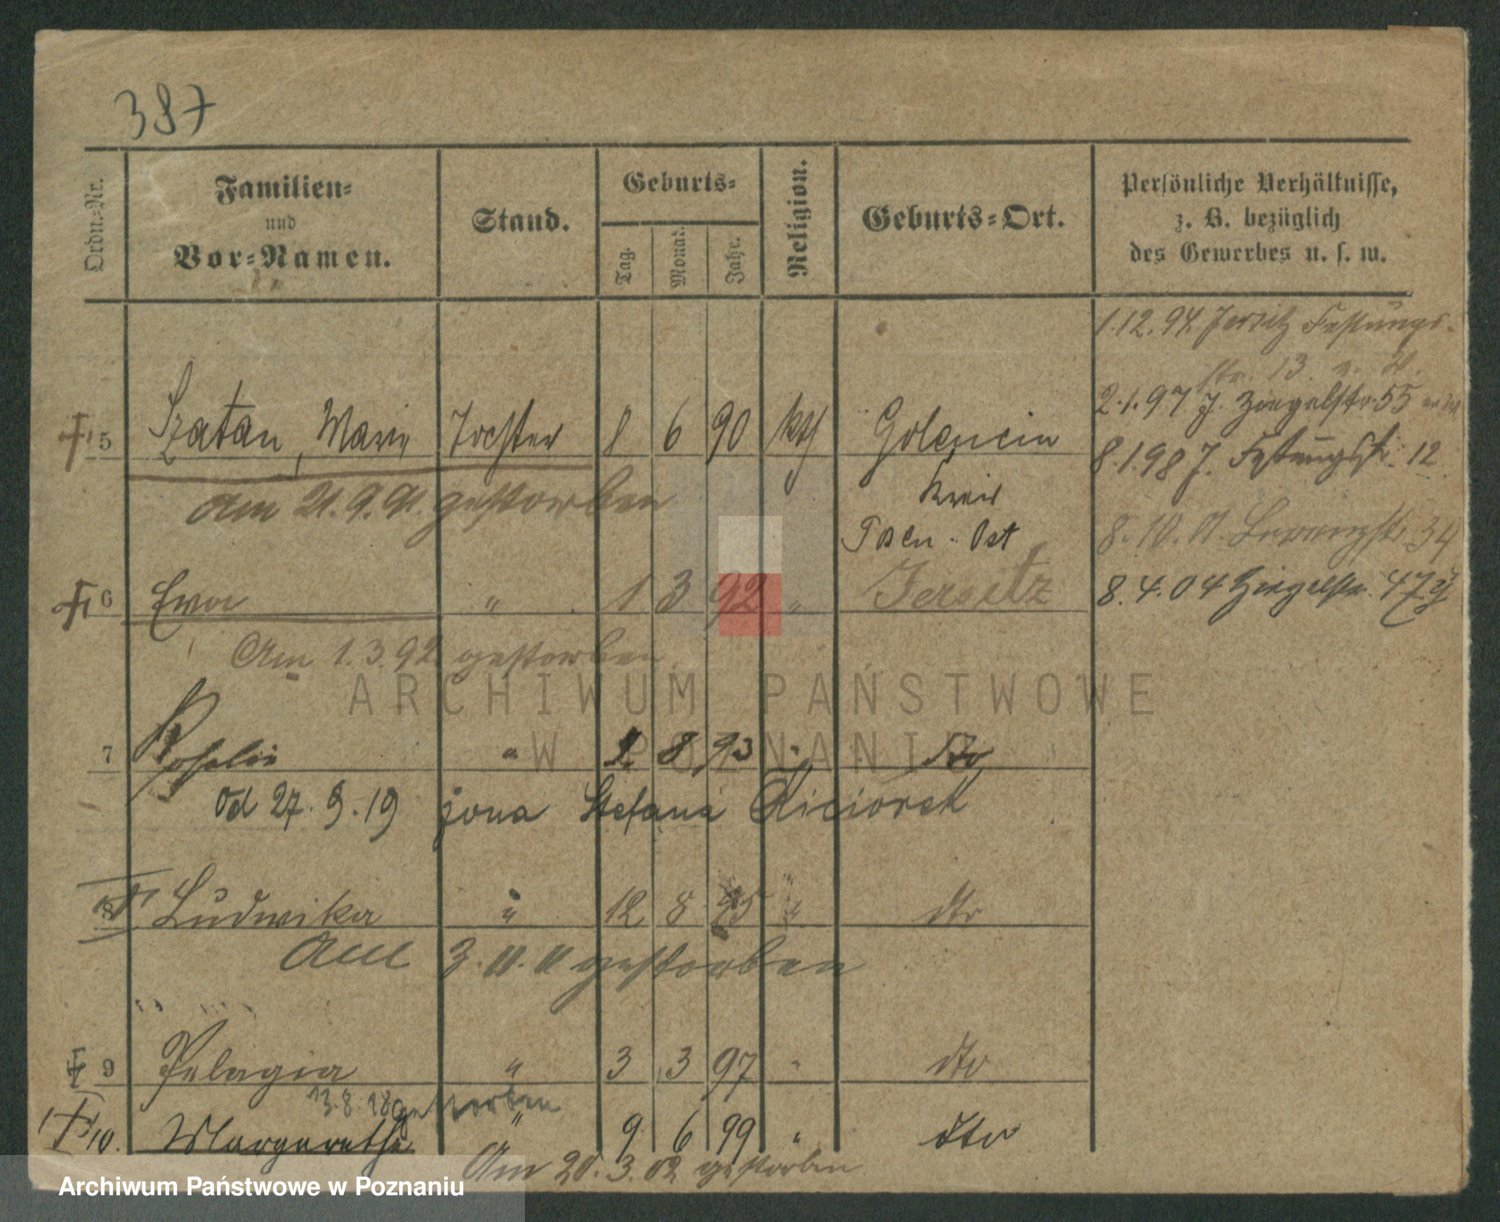 387
Ordn.-Nr.
Familien-
und
Vor-Namen.
Stand.
Geburts-
Tag.
Monat.
Jahr.
Religion.
Geburts-Ort.
Persönliche Verhältnisse,
z. B. bezüglich
des Gewerbes u. s. w.
1.12.94. Jersitz Festungs-
str. 13
2.1.97 J. Ziegelstr. 55
5 Szatan, Marie Tochter 8 6 90 kth Golencin
8.1.98 J. Festungsstr. 12
am 21.9.91. gestorben
Kreis
Posen-Ost
34
6 Ewa " 1 3 92 " Jersitz
8.4.04 Ziegelstr. 47
Am 1.3.92 gestorben
ARCHIWUM PAŃSTWOWE
W POZNANIU
7 Rosalie " 2 8 93 " dto
od 27.9.19 żona Stefana Kiciorek
8 Ludwika " 12 8 95 " dto
Am 3.11.11 gestorben
9 Pelagia " 3 3 97 " dto
13.8.18 gestorben
10. Margarethe " 9 6 99 " dto
Am 20.3.02 gestorben
Archiwum Państwowe w Poznaniu